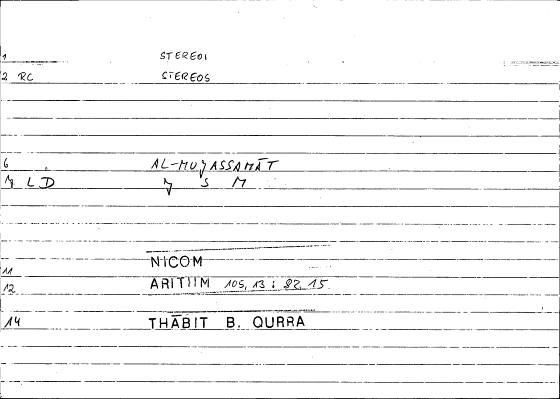 1 STEREOI
2 RC STEREOS
6 AL-MUǧASSAMĀT
ǧ S M
11 NICOM
12 ARITIIM 105, 13 : 82, 15
14 THĀBIT B. QURRA